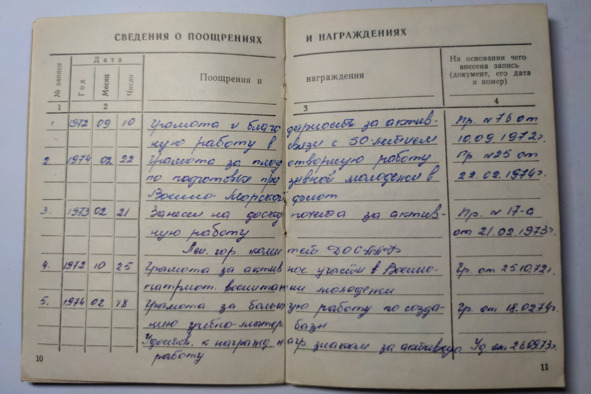 СВЕДЕНИЯ О ПООЩРЕНИЯХ И НАГРАЖДЕНИЯХ
№ записи
Дата
Год
Месяц
Число
Поощрения и награждения
На основании чего
внесена запись
(документ, его дата
и номер)
1 2 3 4
1. 1972 09 10 Грамота и благодарность за актив- Пр. № 76 от
ную работу в связи с 50-летием 10.09.1972г.
2. 1974 02 22 Грамота за плодотворную работу Пр №25 от
по подготовке призывной молодежи в 22.02.1974г.
Военно-Морской флот
3. 1973 02 21 Занесен на доску почета за актив- Пр. № 17-а
ную работу от 21.02.1973г.
гор. комитет ДОСААФ
4. 1972 10 25 Грамота за активное участие в Военно- Гр. от 25.10.72г.
патриот. воспитании молодежи
5. 1974 02 18 Грамота за большую работу по созда- Гр. от 18.02.74г.
нию учебно-матер. базы
Удостов. к награжд. нагр. знаком за активную Уд от
работу
10 11